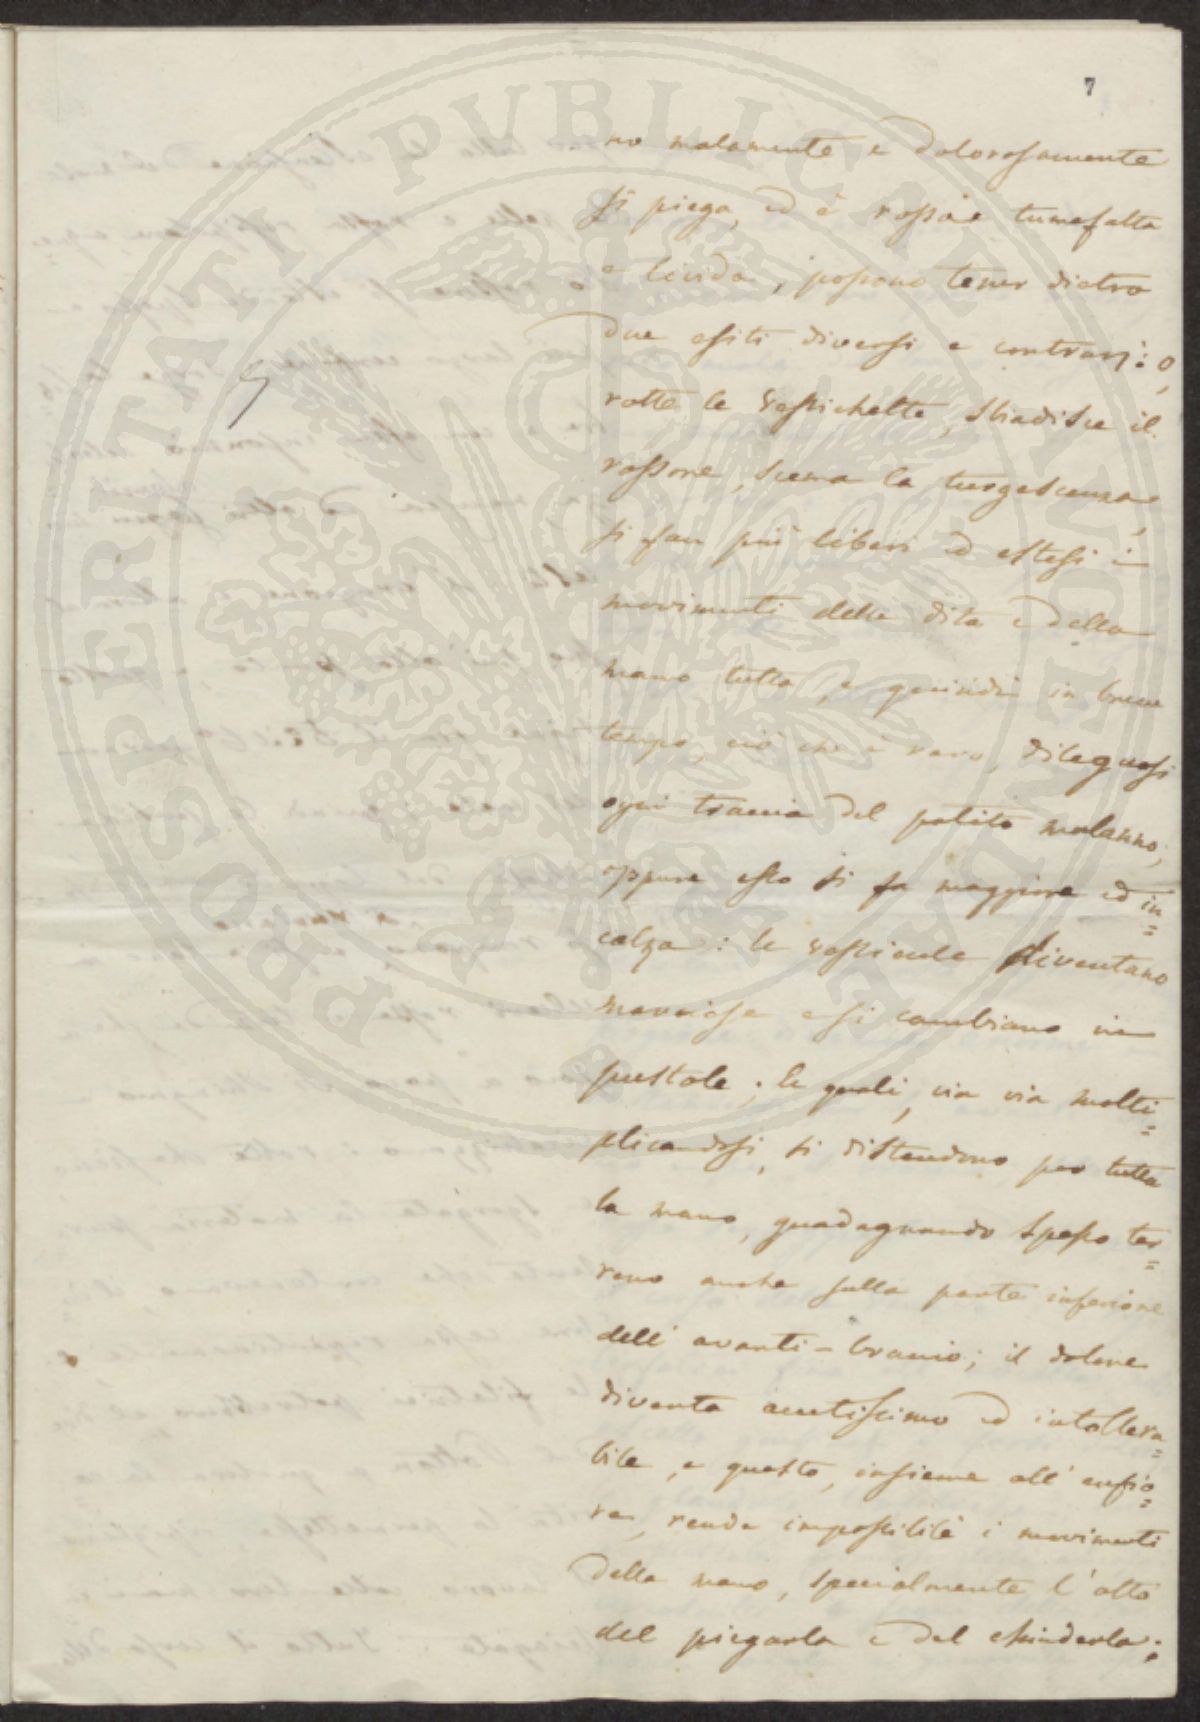 7
no malamente e dolorosamente
si piega, ed è rossa e tumefatta
e livida, possono tener dietro
due esiti diversi e contrarj: o,
rotte le vessichette, sbadisce il
rossore, scema la turgescenza, e
si fan più liberi ed estesi i
movimenti delle dita e della
mano tutta, e quindi in breve
tempo, ciò che è raro, dileguasi
ogni traccia del patito malanno;
oppure esso si fa maggiore ed in=
calza: le vessicule diventano
marciose e si cambiano in
pustole; le quali, via via molti=
plicandosi, si distendono per tutta
la mano, guadagnando spesso ter=
reno anche sulla parte inferiore
dell'avanti-braccio; il dolore
diventa acutissimo ed intollera=
bile, e questo, insieme all'enfio=
re, rende impossibili i movimenti
della mano, specialmente l'atto
del piegarla e del chiuderla;
PROSPERITATI PUBLICAE AUGENDAE